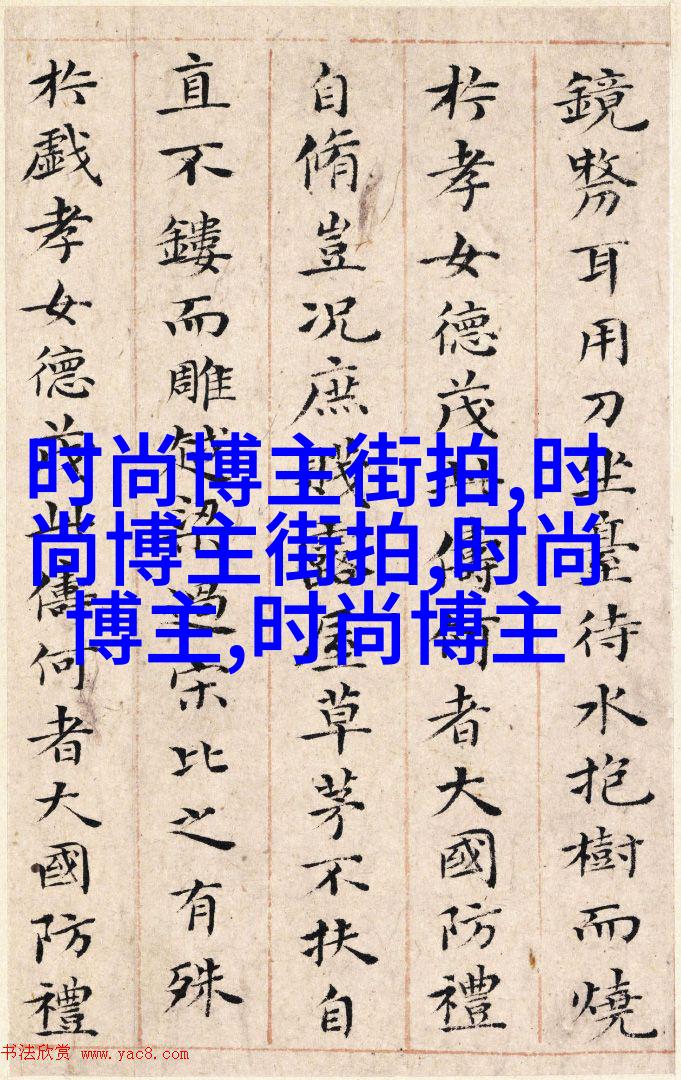 鏡剺耳用刀坐臺待水抱樹而燒
扵孝女德茂此儔何者大國防禮
自脩豈况庶賤露屋草茅不扶自
直不鏤而雕越梁過宋比之有殊
扵戯孝女德茂此儔何者大國防禮
时尚博主街拍,时
尚博主街拍,时尚
博主,时尚博主
书法欣赏 www.yac8.com